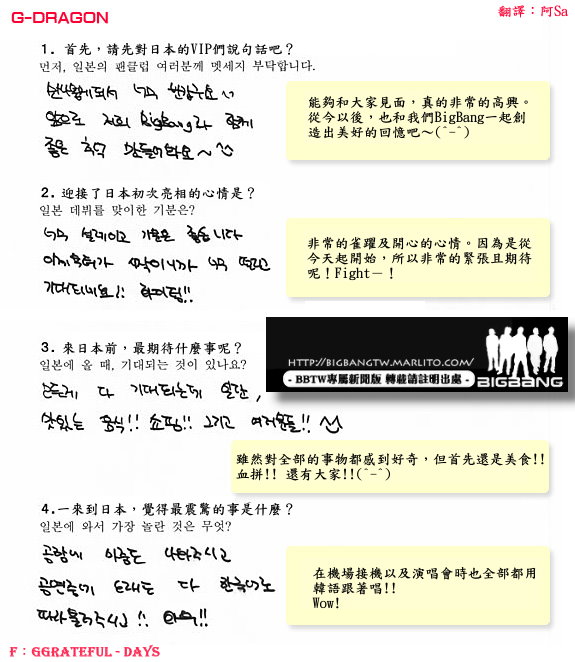 G-DRAGON
翻譯：阿Sa
1. 首先，請先對日本的VIP們說句話吧？
먼저, 일본의 팬클럽 여러분께 멧세지 부탁합니다.
만나뵙게되서 너무 반갑구요
앞으로 저희 BigBang과 함께
좋은 추억 만들어봐요~
能夠和大家見面，真的非常的高興。
從今以後，也和我們BigBang一起創
造出美好的回憶吧～(^-^)
2. 迎接了日本初次亮相的心情是？
일본 데뷔를 맞이한 기분은?
너무 설레이고 기분은 좋습니다
이제부터가 시작이니까 너무 떨리고
기대되네요!! 화이팅!!
非常的雀躍及開心的心情。因為是從
今天起開始，所以非常的緊張且期待
呢！Fight－！
3. 來日本前，最期待什麼事呢？
일본에 올 때, 기대되는 것이 있나요?
HTTP://BIGBANGTW.MARLITO.COM/
- BBTW專屬新聞版 轉載請註明出處 -
BIGBANG
다 기대되는데 일단,
맛있는 음식!! 쇼핑!! 그리고 여러분들!!
雖然對全部的事物都感到好奇，但首先還是美食!!
血拼!! 還有大家!!(^-^)
4.一來到日本，覺得最震驚的事是什麼？
일본에 와서 가장 놀란 것은 무엇?
공항에 마중도 나와주시고
공연중에 노래도 다 한국어로
따라불러주시고!! 와우!!
在機場接機以及演唱會時也全部都用
韓語跟著唱!!
Wow!
F：GGRATEFUL-DAYS